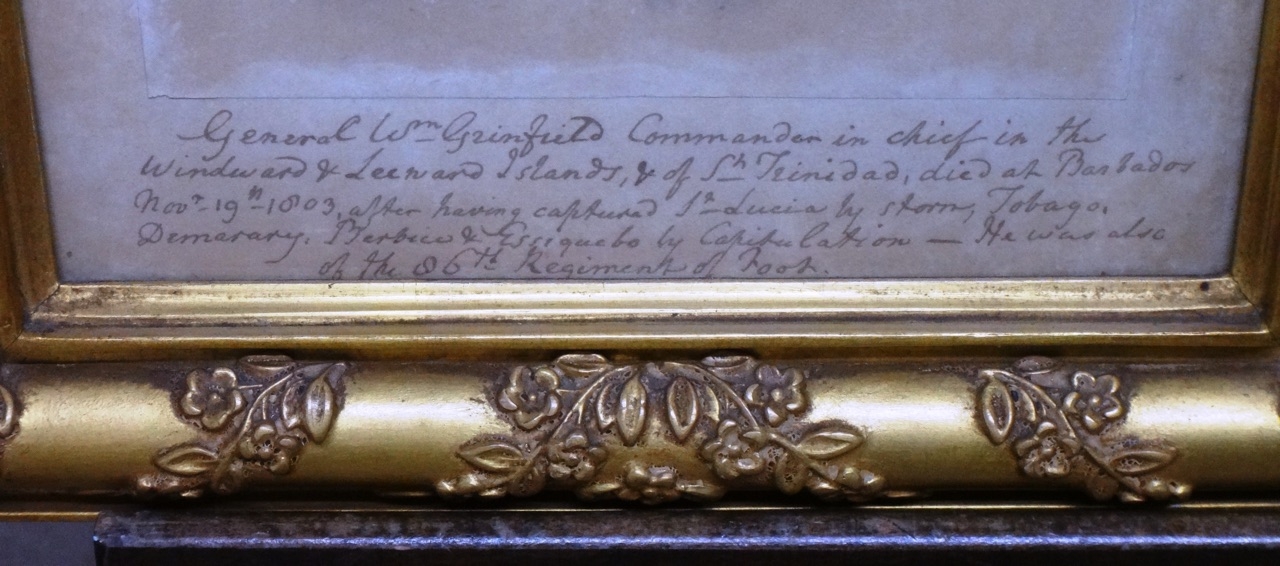 General Wm Grinfield Commander in chief in the
Windward & Leeward Islands, & of St. Trinidad, died at Barbados
Novr. 19th 1803, after having captured St. Lucia by storm, Tobago,
Demarary, Berbice & Essequebo by Capitulation — He was also
of the 86th Regiment of Foot.